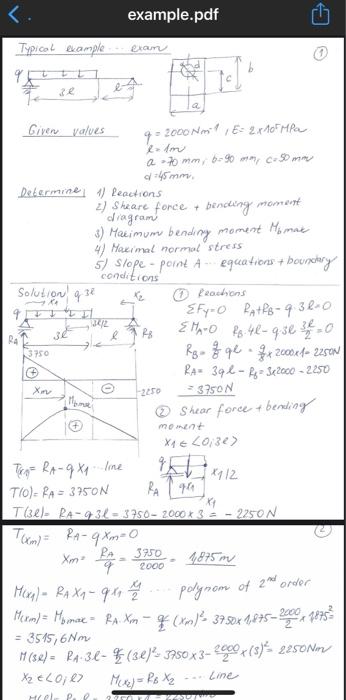 example.pdf
Typical example ... exam
1
q
3l
l
d
b
c
a
Given values
q = 2000 Nm⁻¹, E = 2×10⁵ MPa
l = 1m
a = 70 mm; b = 90 mm, c = 50 mm
d = 45mm.
Determine: 1) Reactions
2) Sheare force + bending moment
diagram
3) Maximum bending moment Mbmax
4) Maximal normal stress
5) Slope - point A ... equations + boundary
conditions
Solution: q.3l
x1
x2
q
3l/2
3l
l
RA
RB
3750
+
Xm
−
-2250
Mbmax
+
① Reactions
ΣFy=0 RA+RB-q.3l=0
ΣMA=0 RB.4l-q.3l 3l/2=0
RB= 9/8 ql = 9/8 × 2000×1= 2250N
RA= 3ql - RB = 3×2000 - 2250
= 3750N
② Shear force + bending
moment
x1 ∈ <0;3l>
q
x1/2
RA
qx1
x1
T(x1)= RA-qx1 ... line
T(0)= RA = 3750N
T(3l)= RA-q3l = 3750-2000×3 = -2250N
2
T(xm)= RA-qxm=0
xm= RA/q = 3750/2000 = 1,875m
M(x1)= RAx1-qx1 x1/2 .... polynom of 2nd order
M(xm)= Mbmax= RA.xm - q/2 (xm)²= 3750×1,875-2000/2×1,875²
= 3515,6Nm
M(3l)= RA.3l-q/2(3l)²=3750×3-2000/2×(3)²= 2250Nm
x2 ∈ <0;l> M(x2)= RB x2 .... line